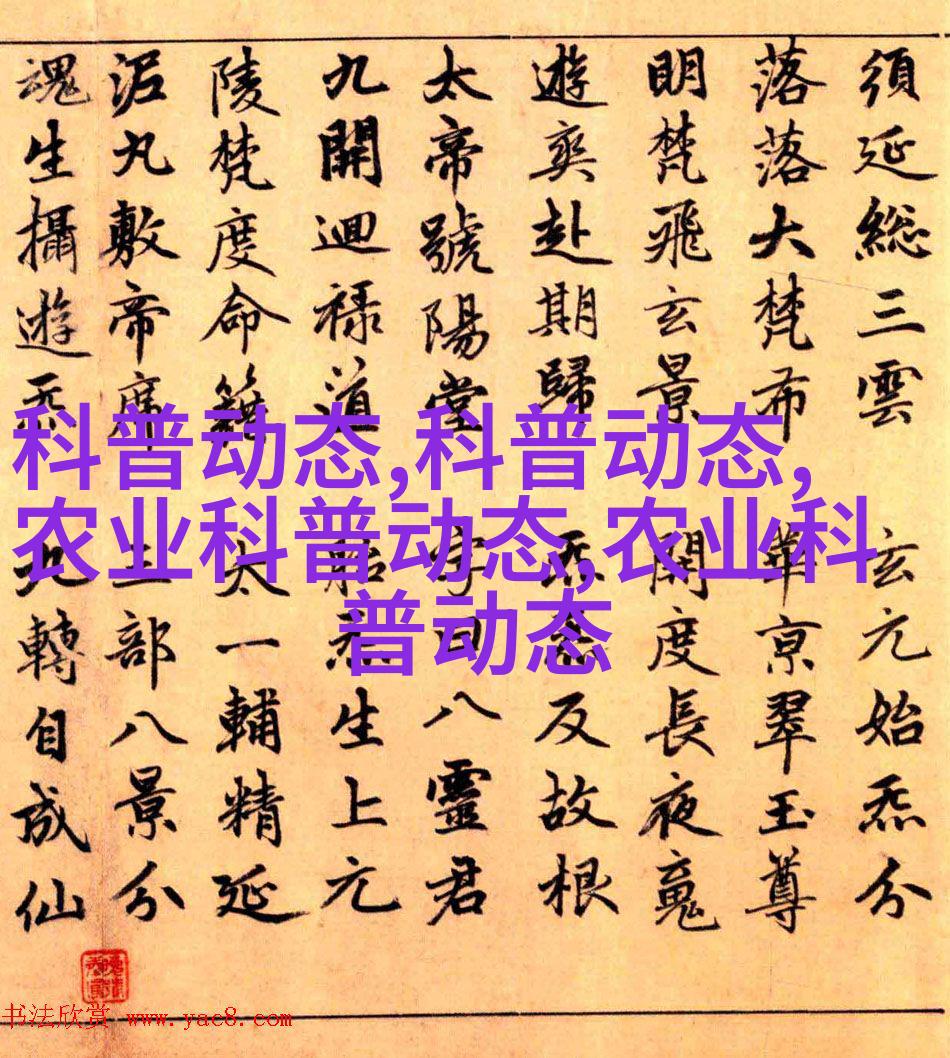 須延総三雲 玄元始炁分
落落大梵布 華亰翠玉尊
明梵飛玄景 開度長夜
遊爽赴期歸 炁 反故根
太帝號陽堂 字曰八靈君
九開迴禄道 炁生上元
陵梵度命籍 太一輔精延
泥丸敷帝席 三部八景分
魂生攝遊炁 九轉自成仙
科普动态,科普动态,
农业科普动态,农业科
普动态
书法欣赏 www.yac8.com